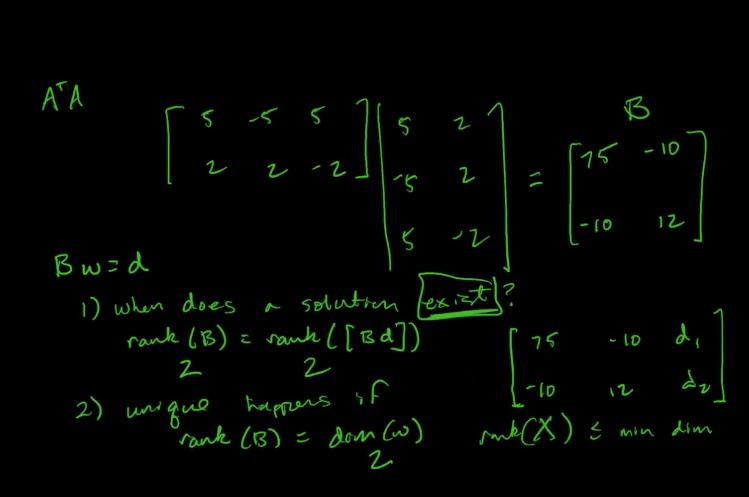 AᵀA
[ 5 -5 5 ] [ 5 2 ] = [ 75 -10 ] B
[ 2 2 -2 ] [ -5 2 ] [ -10 12 ]
[ 5 -2 ]
Bw = d
1) when does a solution exist?
rank(B) = rank([Bd])
2 2
[ 75 -10 d₁ ]
[ -10 12 d₂ ]
2) unique happens if
rank(B) = dom(w)
2
rank(X) ≤ min dim